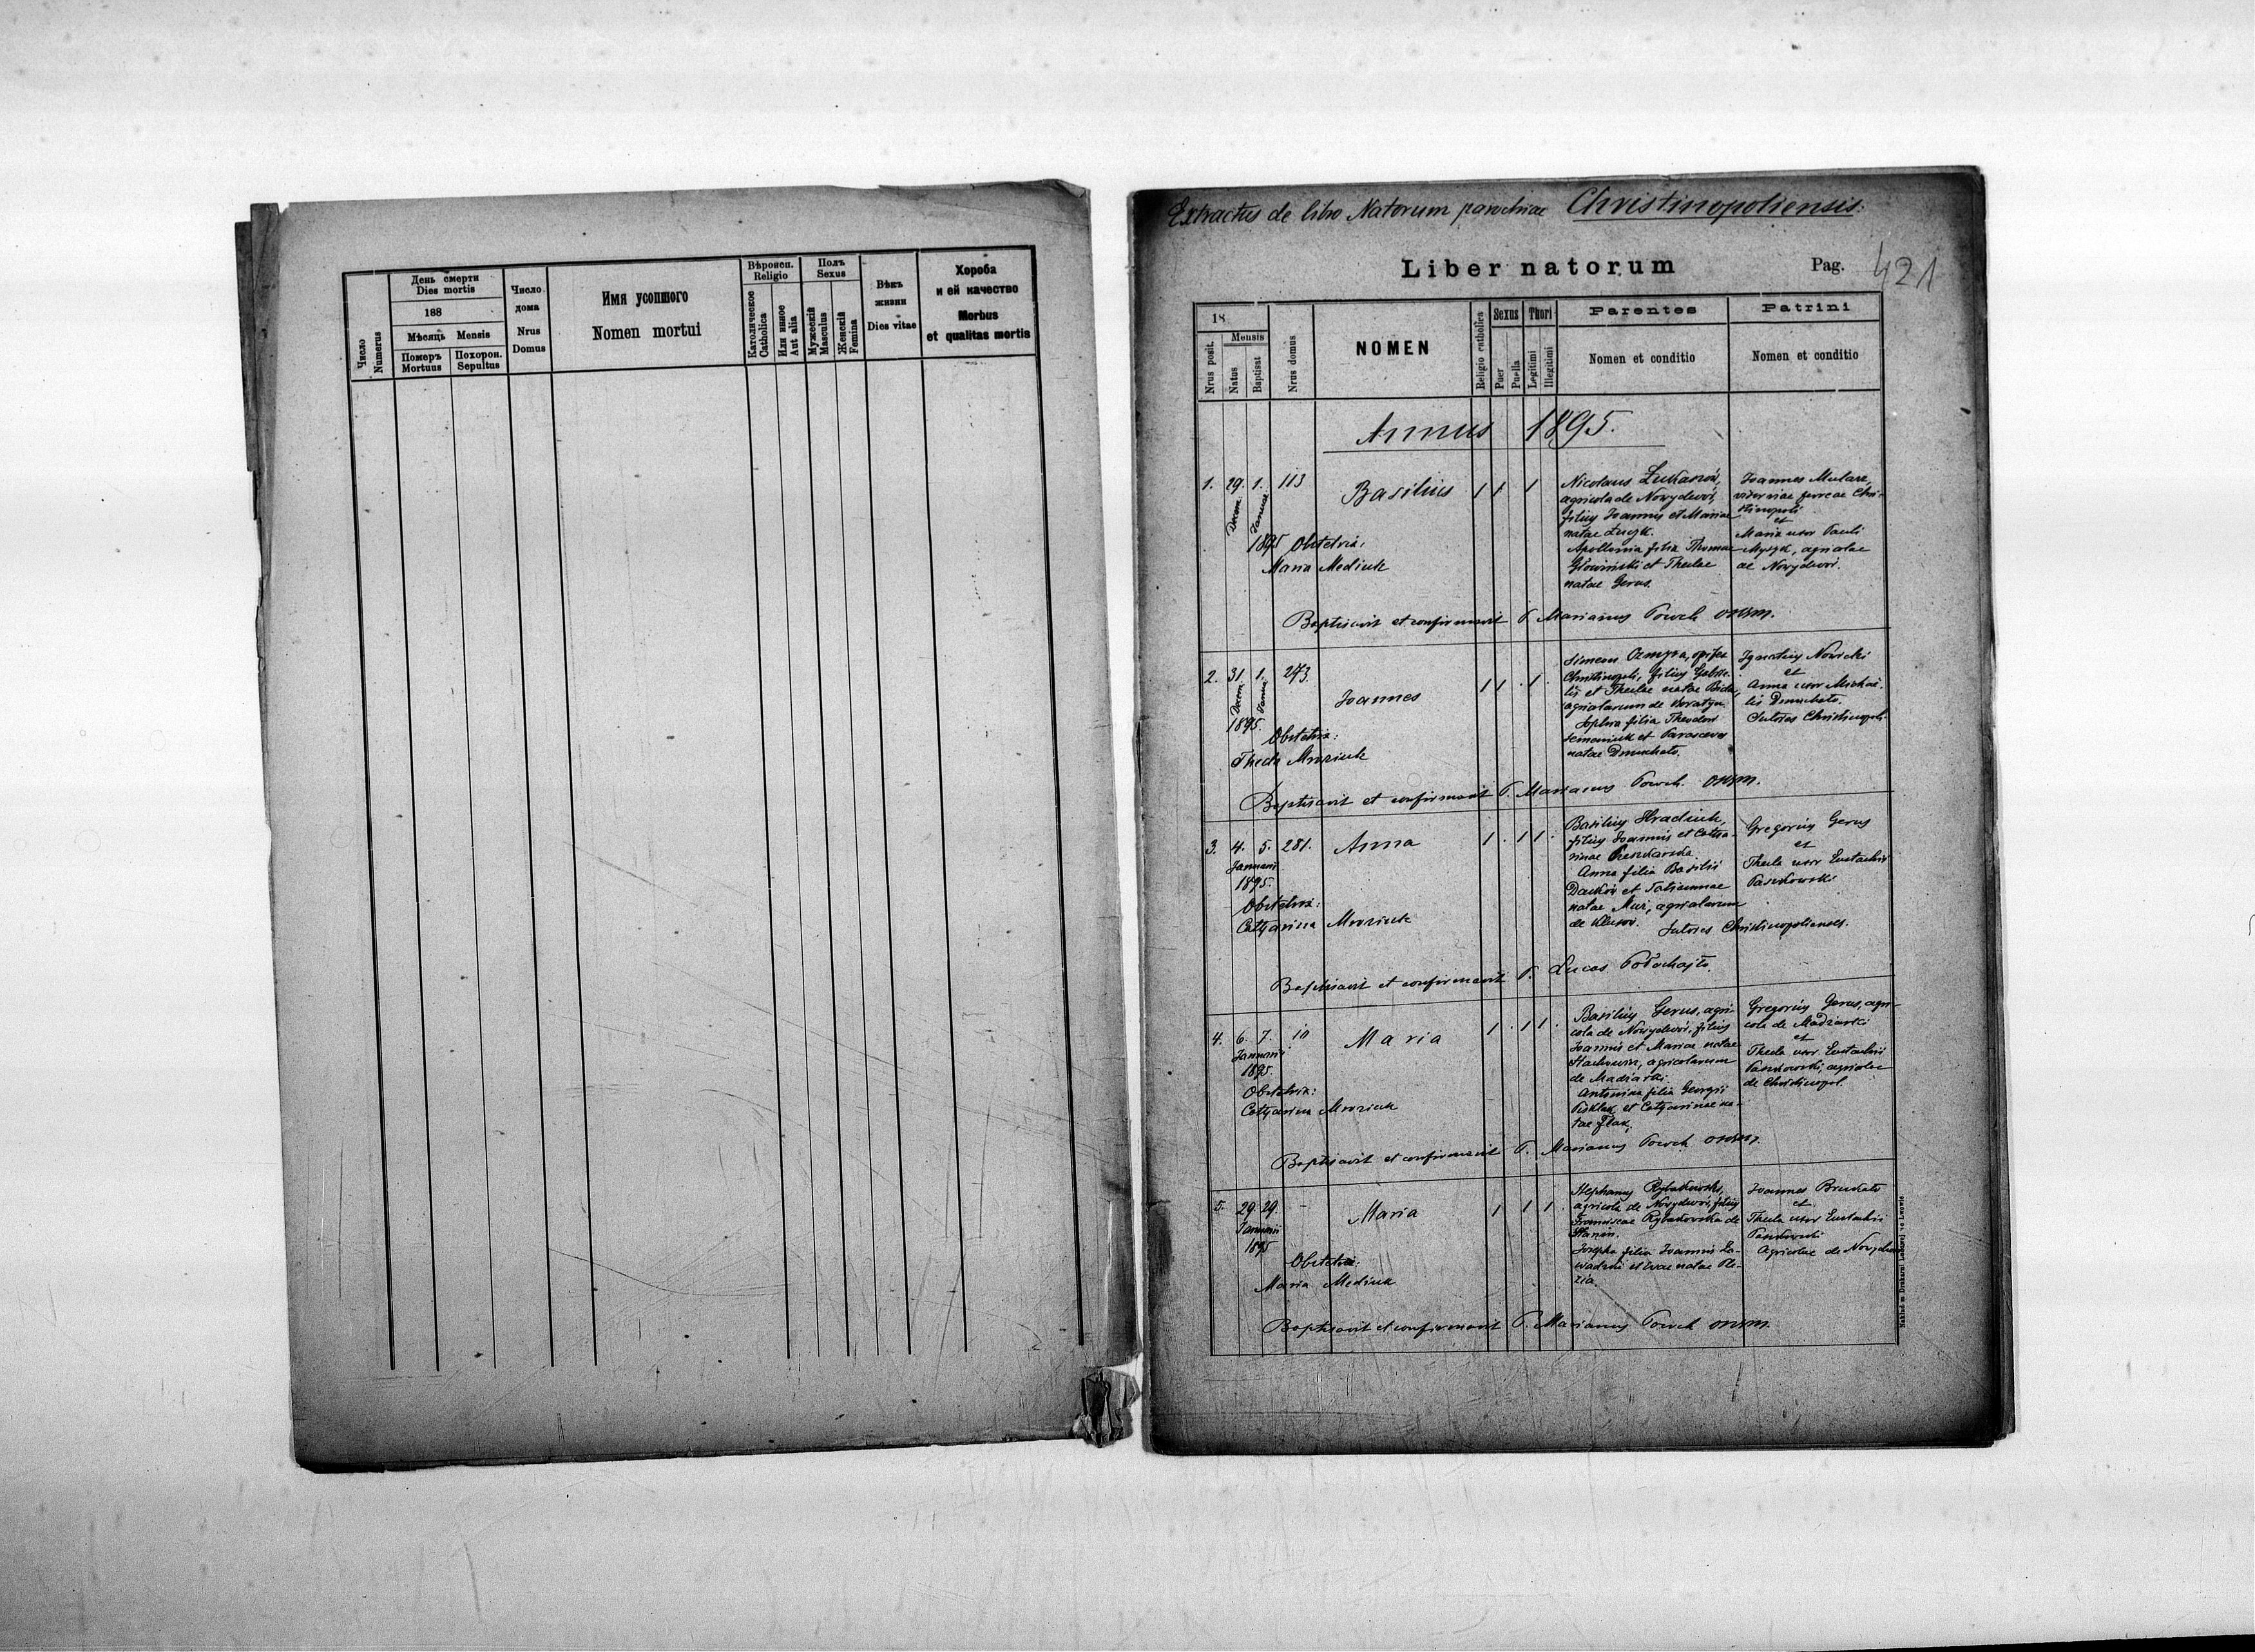 День смерти
Dies mortis
188
Мѣсяць Mensis
Померъ
Mortuus
Похорон.
Sepultus
Число
Numerus
Число
дома
Nrus
Domus
Имя усопшого
Nomen mortui
Вѣроисп.
Religio
Католическое
Catholica
Или инное
Aut alia
Полъ
Sexus
Мужескій
Masculus
Женскій
Femina
Вѣкъ
жизни
Dies vitae
Хороба
и ей качество
Morbus
et qualitas mortis
Extractus de libro Natorum parochiae Christinopoliensis.
Liber natorum
Pag. 421
18
Nrus posit.
Mensis
Natus
Baptisat
Nrus domus
NOMEN
Religio catholica
Sexus
Puer
Puella
Thori
Legitimi
Illegitimi
Parentes
Nomen et conditio
Patrini
Nomen et conditio
Annus 1895.
1. 29. 1. 113 Basilius 1 1 1
Decem. Januar.
1895 Obstetrix:
Maria Mediuk
Nicolaus
agricola de Nowydwór,
filius Joannis et Mariae
natae
Apollonia filia Thomae
Głowiński et Theclae
natae Gerus.
Joannes
viae ferreae Chri-
stinopoli
et
Maria uxor Pauli
agricolae
de Nowydwór.
Baptisavit et confirmavit P. Marianus Powch OSBM.
2. 31. 1. 273. Joannes 1 1 1
Decem. Januar.
1895.
Obstetrix:
Thecla Mroziuk
Simeon opifex
Christinopoli, filius Gabrie-
lis et Theclae natae
agricolarum de
Sophia filia Theodori
Semeniuk et Parascevae
natae
Ignatius Nowicki
et
Anna uxor Michaë-
lis
Sutores Christinopoli.
Baptisavit et confirmavit P. Marianus Powch OSBM.
3. 4. 5. 281. Anna 1 1 1
Januarii
1895.
Obstetrix:
Catharina Mroziuk
Basilius Hradiuk,
filius Joannis et Catha-
rinae
Anna filia Basilii
et Tatiannae
natae Mur, agricolarum
de Klusów.
Gregorius Gerus
et
Thecla uxor Eustachii
Paszkowski
Sutores Christinopolienses.
Baptisavit et confirmavit P. Lucas
4. 6. 7. 10 Maria 1 1 1
Januarii
1895.
Obstetrix:
Catharina Mroziuk
Basilius Gerus, agri-
cola de Nowydwór, filius
Joannis et Mariae natae
agricolarum
de Madziarki.
Antonina filia Georgii
et Catharinae na-
tae
Gregorius Gerus, agri-
cola de Madziarki
et
Thecla uxor Eustachii
Paszkowski, agricolae
de Christinopol.
Baptisavit et confirmavit P. Marianus Powch OSBM.
5. 29. 29. - Maria 1 1 1
Januarii
1895
Obstetrix:
Maria Mediuk
Stephanus Rybakowski,
agricola de Nowydwór, filius
Franciscae Rybakowska de
Josepha filia Joannis Za-
wadzki et Evae natae
Joannes
et
Thecla uxor Eustachii
Paszkowski
Agricolae de Nowydwór
Baptisavit et confirmavit P. Marianus Powch OSBM.